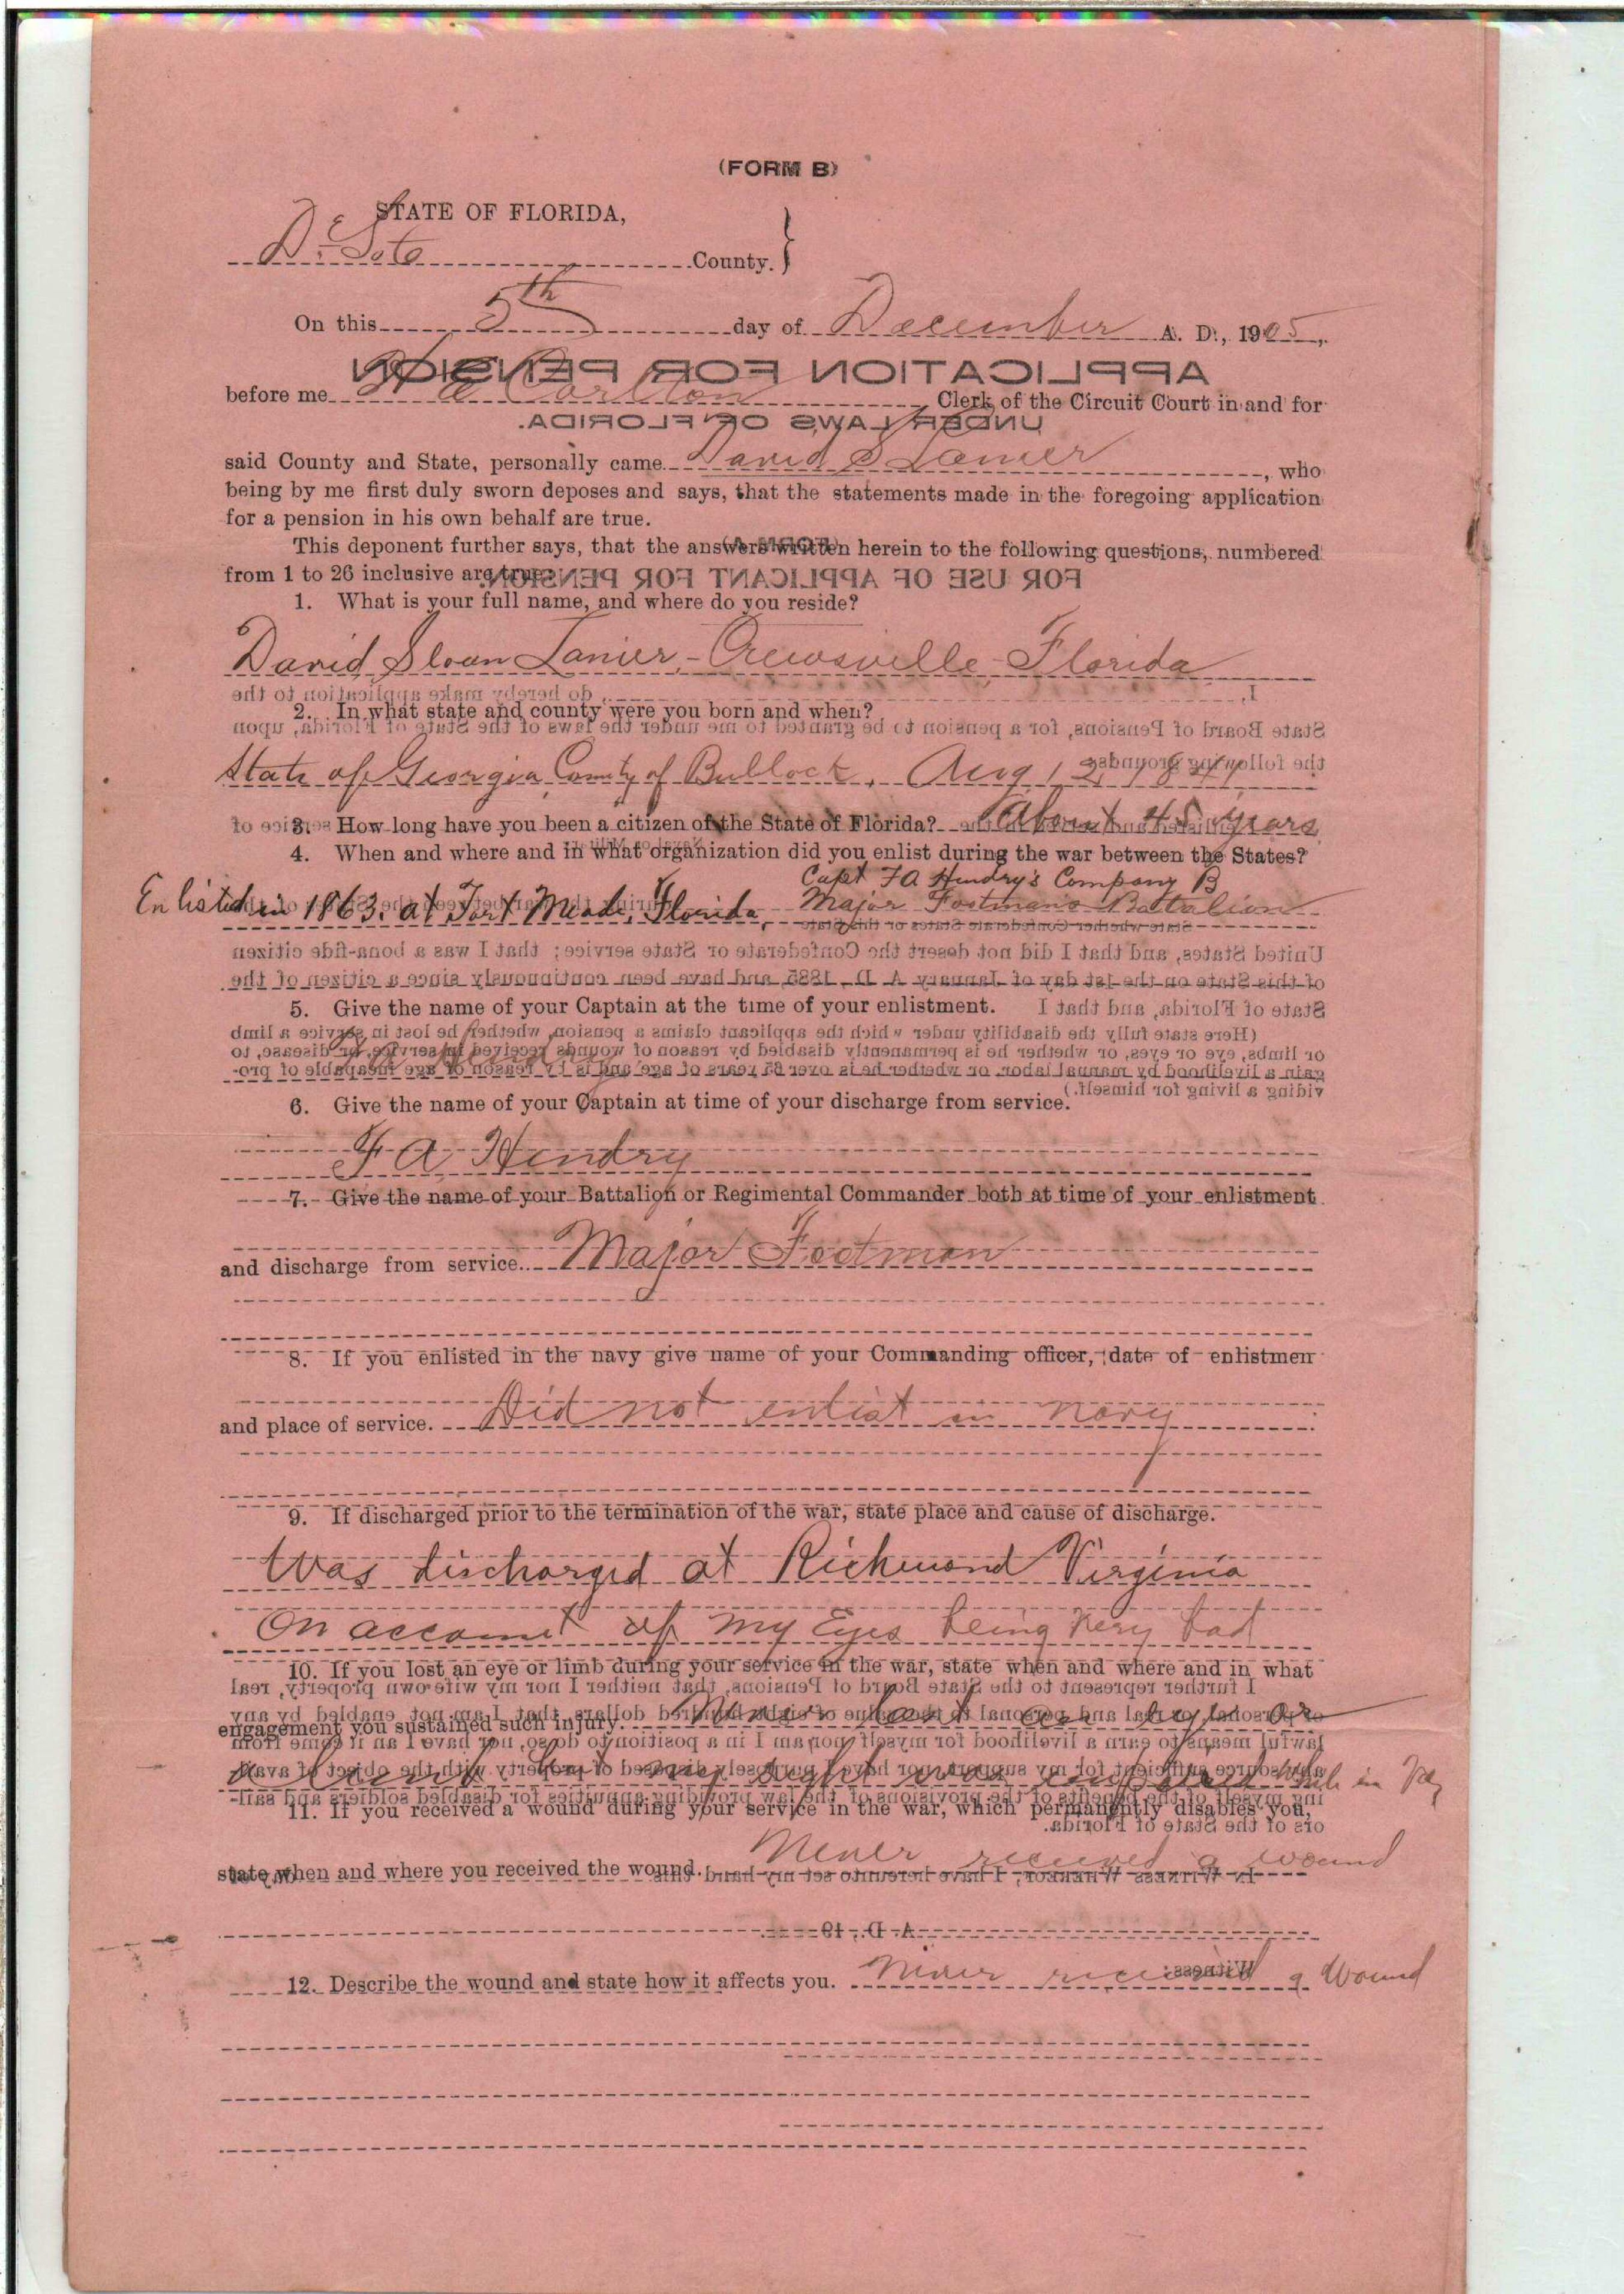 (FORM B)
STATE OF FLORIDA,
DeSoto County.
On this 5th day of December A. D., 1905,
before me Carlton Clerk of the Circuit Court in and for
said County and State, personally came David S Lanier, who
being by me first duly sworn deposes and says, that the statements made in the foregoing application
for a pension in his own behalf are true.
This deponent further says, that the answers written herein to the following questions, numbered
from 1 to 26 inclusive are true.
1. What is your full name, and where do you reside?
David Sloan Lanier - Crewsville - Florida
2. In what state and county were you born and when?
State of Georgia County of Bullock, Aug 12
3. How long have you been a citizen of the State of Florida? About 45 years
4. When and where and in what organization did you enlist during the war between the States?
Capt F A Hendry's Company B
Enlisted in 1863. at Fort Meade, Florida, Major Footman's Battalion
5. Give the name of your Captain at the time of your enlistment.
6. Give the name of your Captain at time of your discharge from service.
F A Hendry
7. Give the name of your Battalion or Regimental Commander both at time of your enlistment
and discharge from service. Major Footman
8. If you enlisted in the navy give name of your Commanding officer, date of enlistmen
and place of service. Did not enlist in navy
9. If discharged prior to the termination of the war, state place and cause of discharge.
Was discharged at Richmond Virginia
On account of my Eyes being very bad
10. If you lost an eye or limb during your service in the war, state when and where and in what
engagement you sustained such injury. Never lost an eye or
a limb but my sight was impaired while in
11. If you received a wound during your service in the war, which permanently disables you,
state when and where you received the wound. Never received a wound
12. Describe the wound and state how it affects you. Never received a wound